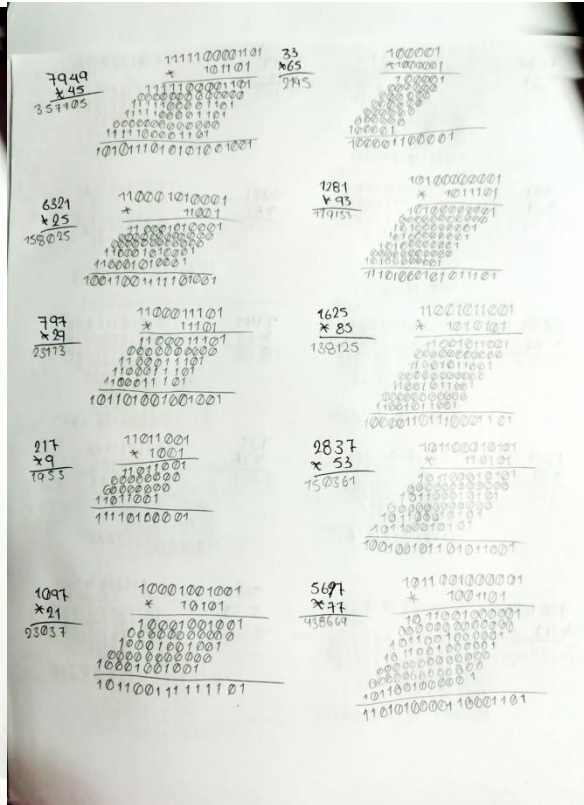 7949
*45
357705
1111100001101
* 101101
1111100001101
0000000000000
1111100001101
1111100001101
0000000000000
1111100001101
1010111010101001001
33
*65
2145
100001
*1000001
100001
000000
000000
000000
000000
000000
100001
100001100001
6321
*25
158025
110001010001
* 11001
110001010001
000000000000
000000000000
110001010001
110001010001
1281
*93
119133
10100000001
* 1011101
10100000001
00000000000
10100000001
10100000001
10100000001
00000000000
10100000001
11101000101011101
797
*29
23113
1100011101
* 11101
1100011101
0000000000
1100011101
1100011101
1100011101
101101001001001
1625
* 85
138125
11001011001
* 1010101
11001011001
00000000000
11001011001
00000000000
11001011001
00000000000
11001011001
100001101110001101
217
*9
1953
11011001
* 1001
11011001
00000000
00000000
11011001
11110100001
2837
* 53
150361
101100010101
* 110101
101100010101
000000000000
101100010101
000000000000
101100010101
101100010101
100100101101011001
1097
*21
23037
10001001001
* 10101
10001001001
00000000000
10001001001
00000000000
10001001001
101100111111101
5697
*77
438669
1011001000001
* 1001101
1011001000001
0000000000000
1011001000001
1011001000001
0000000000000
0000000000000
1011001000001
1101011000110001101